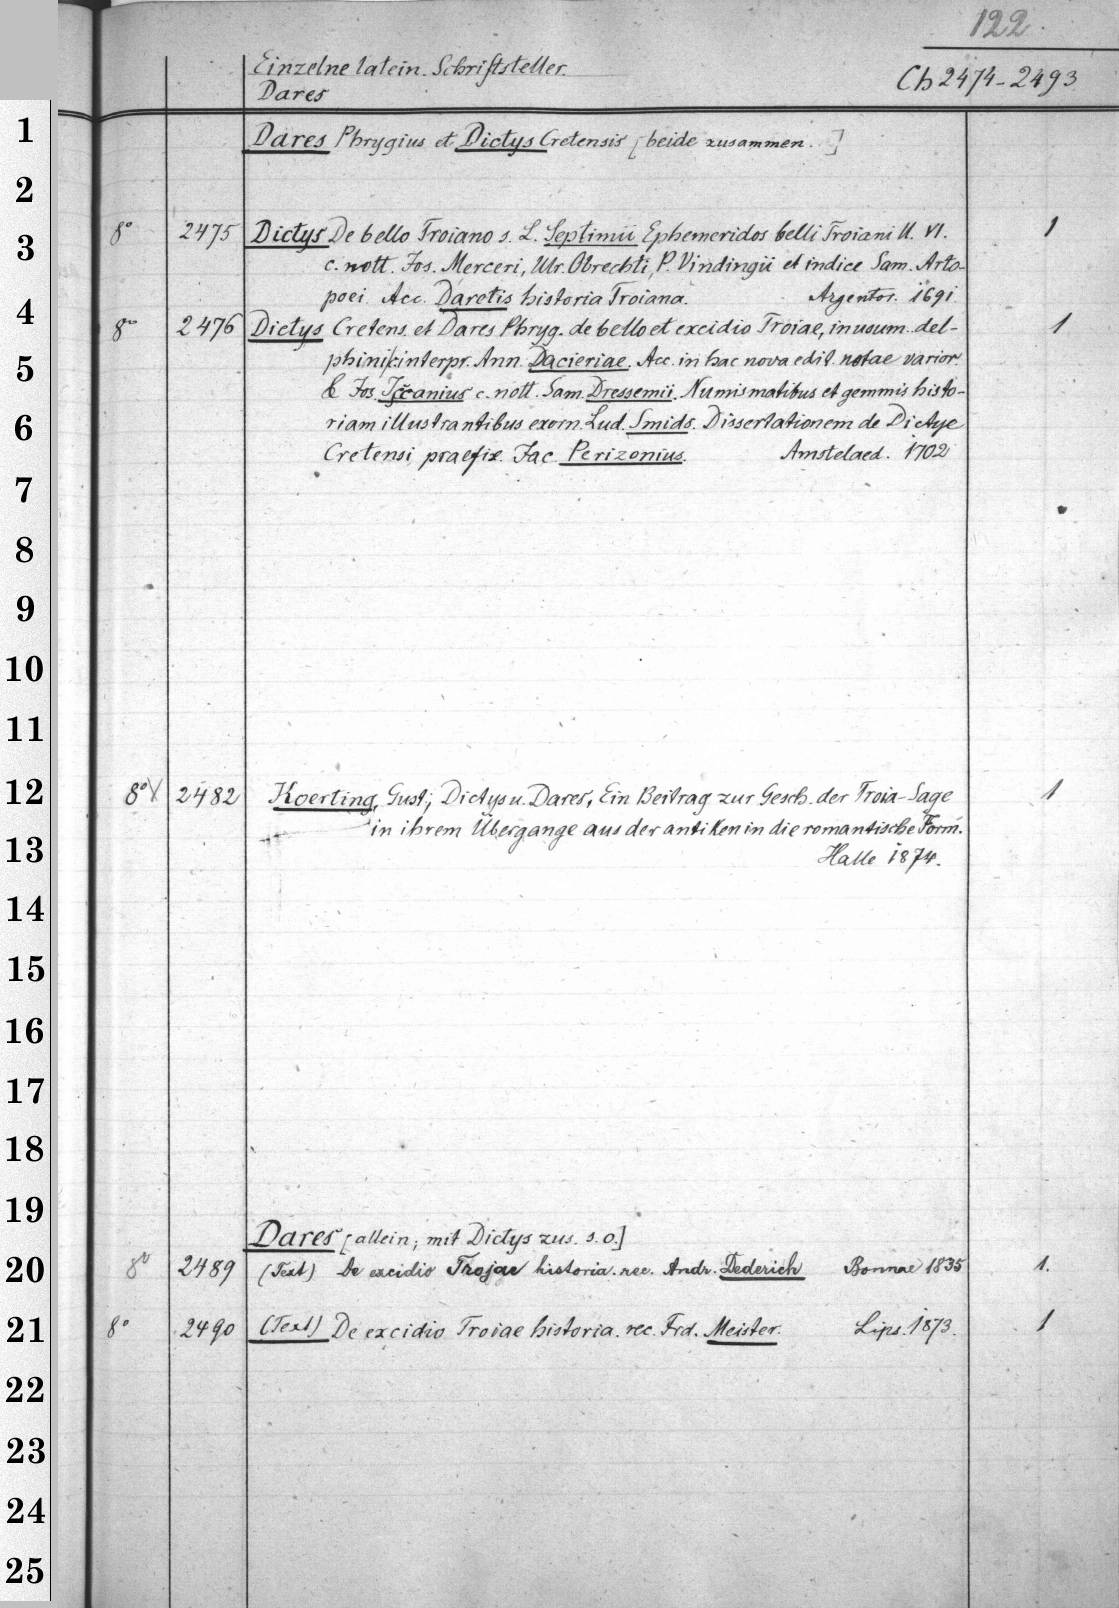 122.
Einzelne latein. Schriftsteller.
Dares
Ch 2474-2493
1
Dares Phrygius et Dictys Cretensis [beide zusammen.]
2
8° 2475 Dictys De bello Troiano s. L. Septimii Ephemeridos belli Troiani ll. VI. 1
3
c. nott. Jos. Merceri, Ulr. Obrechti, P. Vindingii et indice Sam. Arto-
poei. Acc. Daretis historia Troiana. Argentor. 1691
4
8° 2476 Dictys Cretens. et Dares Phryg. de bello et excidio Troiae, in usum del- 1
5
phini interpr. Ann. Dacieriae. Acc. in hac nova edit. notae varior.
& Jos. Iscanius c. nott. Sam. Dressemii. Numismatibus et gemmis histo-
6
riam illustrantibus exorn. Lud. Smids. Dissertationem de Dictye
Cretensi praefix. Jac. Perizonius. Amstelaed. 1702
7
8
9
10
11
12
8° 2482 Koerting, Gust; Dictys u. Dares, Ein Beitrag zur Gesch. der Troia-Sage 1
in ihrem Übergange aus der antiken in die romantische Form.
13
Halle 1874.
14
15
16
17
18
19
Dares [allein; mit Dictys zus. s. o.]
20
8° 2489 (Text) De excidio Trojae historia. rec. Andr. Dederich Bonnae 1835 1.
21
8° 2490 (Text) De excidio Troiae historia. rec. Frd. Meister. Lips. 1873. 1
22
23
24
25